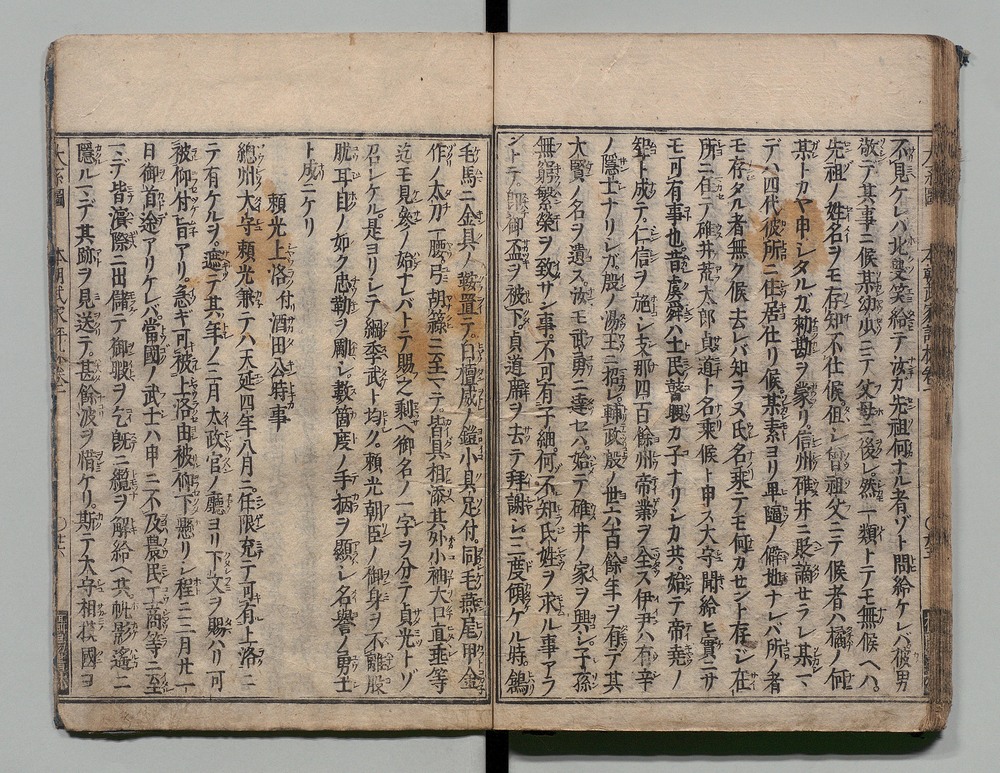 不見ケレハ北叟笑給テ汝カ先祖何ナル者ゾト問給ケレバ彼男
敬テ其事ニ候某幼少ニテ父母ニ後レ然一類トテモ無候ヘハ
先祖ノ姓名ヲモ存知不仕候但シ曾祖父ニテ候者ハ橘ノ何
某トカヤ申シタルガ勅勘ヲ蒙リ信州碓井ニ貶謫セラレ某マ
デハ四代彼所ニ住居仕リ候某素ヨリ卑陋ノ僻地ナレバ所ノ者
モ存タル者無ク候去レバ知ラヌ氏名乗テモ何カセント存ジ在
所ニ任テ碓井荒太郎貞道ト名乗候ト申ス大守聞給ヒ實ニサ
モ可有事也昔虞舜ハ土民瞽瞍カ子ナリシカ共始テ帝堯ノ
ト成テ仁信ヲ施シ支那四百餘州帝業ヲ全ス伊尹ハ有莘
ノ隱士ナリシガ殷ノ湯王ニ招レ輔政殷ノ世六百餘年ヲ有テ其
大賢ノ名ヲ遺ス汝モ武勇ニ達セハ始テ碓井ノ家ヲ興シ子孫
無窮繁榮ヲ致サン事不可有子細何不知氏姓ヲ求ル事アラ
ントテ御盃ヲ被下貞道席ヲ去テ拜謝シ三度傾ケル時鴾
毛馬ニ金具ノ鞍置テ白檀威ノ鎧小具足付同毛燕尾甲金
作ノ太刀一腰弓胡籙ニ至マテ皆具相添其外小袖大口直垂等
迄モ見參ノ始ナレバトテ賜之剰ヘ御名ノ一字ヲ分テ貞光トゾ
召レケル是ヨリシテ綱季武ト均ク頼光朝臣ノ御身ヲ不離股
肱耳目ノ如ク忠勤ヲ勵シ數箇度ノ手柄ヲ顯シ名譽ノ勇士
ト成ニケリ
頼光上洛付酒田公時事
總州大守頼光兼テハ天延四年八月ニ任限充テ可有上洛ニ
テ有ケルヲ遮テ其年ノ三月太政官ノ廳ヨリ下文ヲ賜ハリ可
被仰付旨アリ急ギ可被上洛由被仰下懸リシ程ニ三月廿一
日御首途アリケレバ當國ノ武士ハ申ニ不及農民工商等ニ至
マデ皆濱際ニ出儲テ御暇ヲ乞既ニ纜ヲ解給ヘ共帆影遙ニ
隱ルヽマデ其跡ヲ見送テ甚餘波ヲ惜ケリ斯テ大守相摸國ヨ